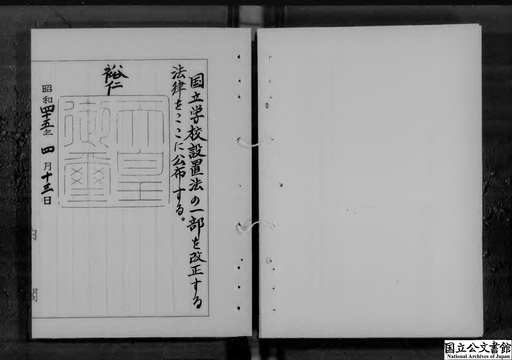 国立学校設置法の一部を改正する
法律をここに公布する。
裕仁
天皇御璽
昭和四十五年四月十三日
内閣
国立公文書館
National Archives of Japan